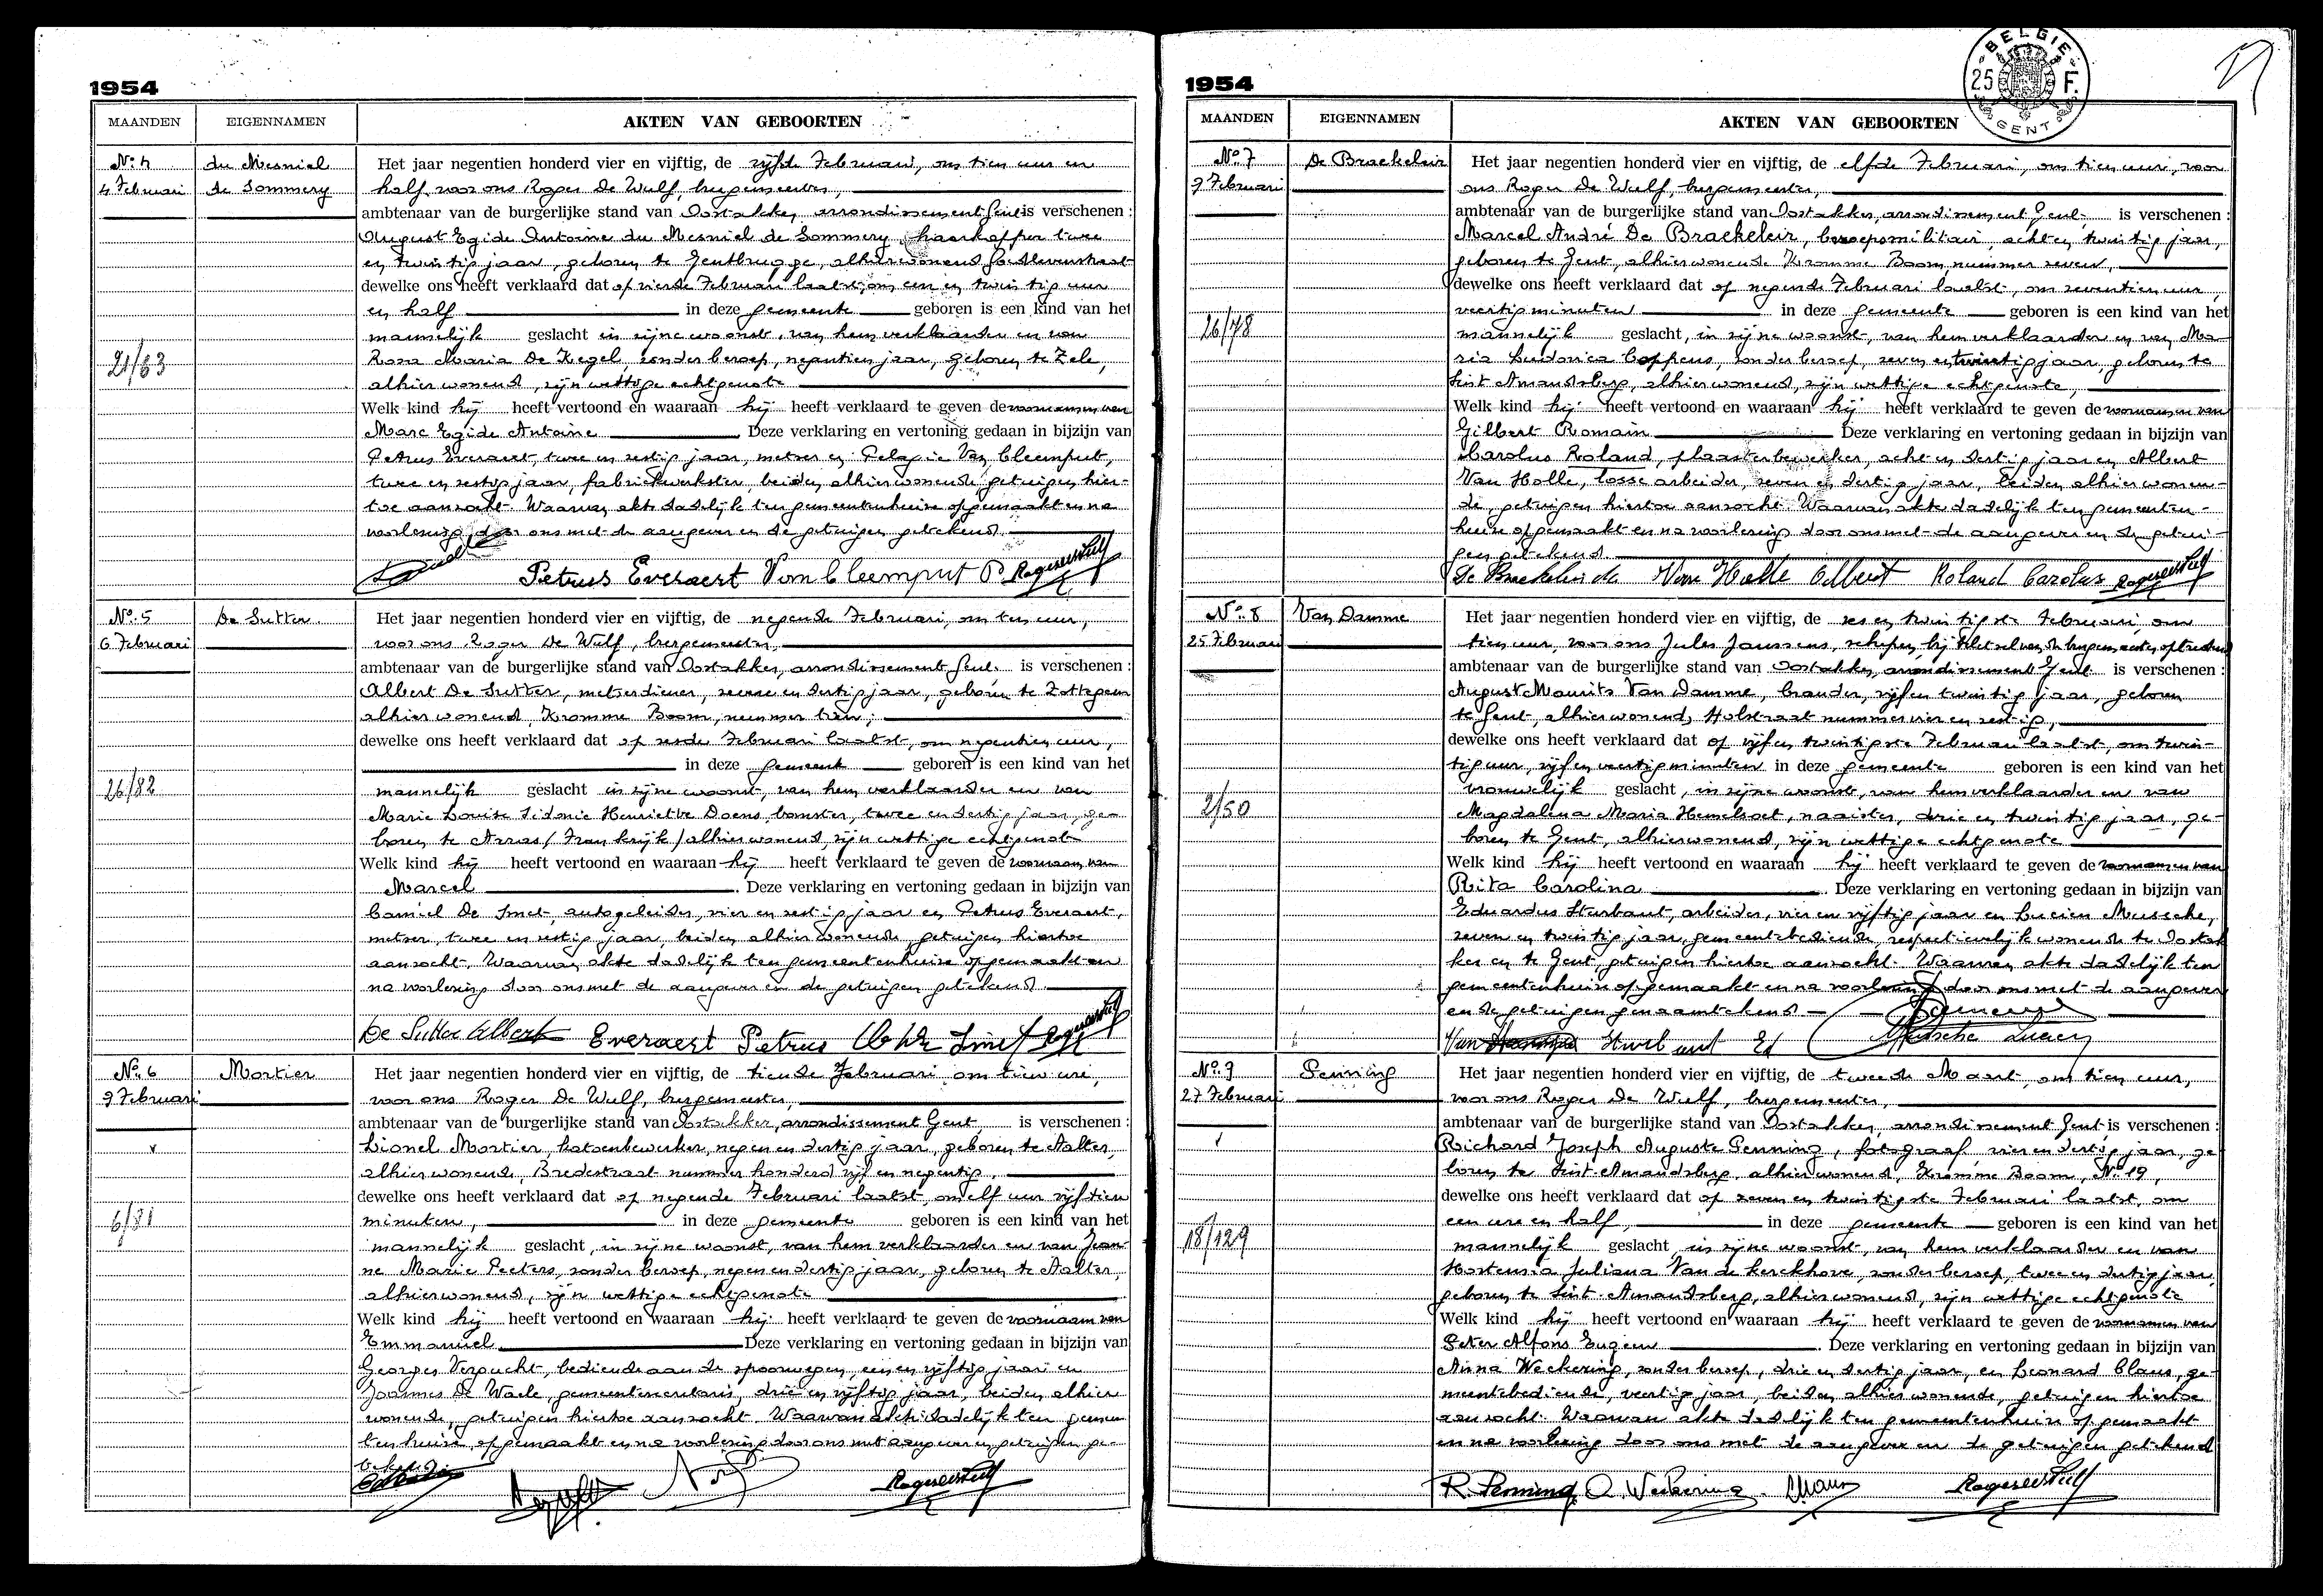 1954
MAANDEN EIGENNAMEN AKTEN VAN GEBOORTEN
No. 4
4 Februari
du Mesniel
de Sommery
21/63
Het jaar negentien honderd vier en vijftig, de vijfde Februari, om tien uur en
half, voor ons Roger De Wulf, burgemeester,
ambtenaar van de burgerlijke stand van Oostakker, arrondissement Gent is verschenen :
August Egide Antoine du Mesniel de Sommery, haarkapper twee
en twintig jaar, geboren te Gentbrugge, alhier wonend
dewelke ons heeft verklaard dat op vierde Februari laatst, om een en twintig uur
en half in deze gemeente geboren is een kind van het
mannelijk geslacht in zijne woonst, van hem verklaarder en van
Rosa Maria De Kegel, zonder beroep, negentien jaar, geboren te Zele,
alhier wonend, zijn wettige echtgenote
Welk kind hij heeft vertoond en waaraan hij heeft verklaard te geven de voornamen van
Marc Egide Antoine Deze verklaring en vertoning gedaan in bijzijn van
Petrus Everaert, twee en zestig jaar, metser en Pelagie Van Cleemput,
twee en zestig jaar, fabriekwerkster, beiden alhier wonende getuigen hier-
toe aanzocht. Waarvan akte dadelijk ten gemeentenhuize opgemaakt en na
voorlezing door ons met de aangever en de getuigen getekend.
Petrus Everaert Van Cleemput P. Roger De Wulf
No. 5
6 Februari
De Sutter
26/82
Het jaar negentien honderd vier en vijftig, de negende Februari, om tien uur,
voor ons Roger De Wulf, burgemeester,
ambtenaar van de burgerlijke stand van Oostakker, arrondissement Gent. is verschenen :
Albert De Sutter, metserdiener, zeven en dertig jaar, geboren te Zottegem
alhier wonend, Kromme Boom, nummer tien,
dewelke ons heeft verklaard dat op zesde Februari laatst, om negentien uur,
in deze gemeente geboren is een kind van het
mannelijk geslacht in zijne woonst, van hem verklaarder en van
Marie Louise Sidonie Henriette Doens, twee en dertig jaar, ge-
boren te Arras (Frankrijk) alhier wonend, zijn wettige echtgenote
Welk kind hij heeft vertoond en waaraan hij heeft verklaard te geven de voornaam van
Marcel . Deze verklaring en vertoning gedaan in bijzijn van
Camiel De Smet, autogeleider, vier en zestig jaar en Petrus Everaert,
metser, twee en zestig jaar, beiden alhier wonende, getuigen hiertoe
aanzocht. Waarvan akte dadelijk ten gemeentenhuize opgemaakt en
na voorlezing door ons met de aangever en de getuigen getekend.
De Sutter Albert Everaert Petrus
No. 6
9 Februari
Mortier
6/31
Het jaar negentien honderd vier en vijftig, de tiende Februari om tien ure,
voor ons Roger De Wulf, burgemeester,
ambtenaar van de burgerlijke stand van Oostakker, arrondissement Gent is verschenen :
Lionel Mortier, katoenbewerker, negen en dertig jaar, geboren te Aalter,
alhier wonende, Bredestraat nummer honderd vijf en negentig,
dewelke ons heeft verklaard dat op negende Februari laatst, om elf uur vijftien
minuten, in deze gemeente geboren is een kind van het
mannelijk geslacht, in zijne woonst, van hem verklaarder en van Jean-
ne Marie Peeters, zonder beroep, negen en dertig jaar, geboren te Aalter,
alhier wonend, zijn wettige echtgenote
Welk kind hij heeft vertoond en waaraan hij heeft verklaard te geven de voornaam van
Emmanuel Deze verklaring en vertoning gedaan in bijzijn van
Georges Verzucht, bediende aan de spoorwegen, een en vijftig jaar en
Joannes De Waele, gemeentesecretaris, drie en vijftig jaar, beiden alhier
wonende, getuigen hiertoe aanzocht. Waarvan akte dadelijk ten gemeen
tenhuize, opgemaakt en na voorlezing door ons met aangever en getuigen ge-
tekend.
Roger De Wulf
1954
BELGIE 25 F. GENT
MAANDEN EIGENNAMEN AKTEN VAN GEBOORTEN
No. 7
9 Februari
De Braekeleir
26/78
Het jaar negentien honderd vier en vijftig, de elfde Februari, om tien uur, voor
ons Roger De Wulf, burgemeester,
ambtenaar van de burgerlijke stand van Oostakker, arrondissement Gent, is verschenen :
Marcel André De Braekeleir, beroepsmilitair, acht en twintig jaar,
geboren te Gent, alhier wonende Kromme Boom, nummer zeven,
dewelke ons heeft verklaard dat op negende Februari laatst, om zeventien uur,
veertig minuten in deze gemeente geboren is een kind van het
mannelijk geslacht, in zijne woonst, van hem verklaarder en van Ma-
ria Ludovica Coppens, zonder beroep, zeven en twintig jaar, geboren te
Sint Amandsberg, alhier wonend, zijn wettige echtgenote,
Welk kind hij heeft vertoond en waaraan hij heeft verklaard te geven de voornamen van
Gilbert Romain Deze verklaring en vertoning gedaan in bijzijn van
Carolus Roland, plaasterbewerker, acht en dertig jaar en Albert
Van Holle, losse arbeider, zeven en dertig jaar, beiden alhier wonen-
de, getuigen hiertoe aanzocht. Waarvan akte dadelijk ten gemeenten-
huize opgemaakt en na voorlezing door ons met de aangever en de getui-
gen getekend.
Van Holle Albert Roland Carolus Roger De Wulf
No. 8
25 Februari
Van Damme
2/50
Het jaar negentien honderd vier en vijftig, de zes en twintigste Februari, om
tien uur, voor ons Jules Janssens, schepen, bij belet van de burgemeester optredend
ambtenaar van de burgerlijke stand van Oostakker, arrondissement Gent is verschenen :
August Maurits Van Damme, brander, vijf en twintig jaar, geboren
te Gent, alhier wonend, Holstraat nummer vier en zestig,
dewelke ons heeft verklaard dat op vijf en twintigste Februari laatst, om twin-
tig uur, vijf en veertig minuten in deze gemeente geboren is een kind van het
vrouwelijk geslacht, in zijne woonst, van hem verklaarder en van
Magdalena Maria Hemelsoet, naaister, drie en twintig jaar, ge-
boren te Gent, alhier wonend, zijn wettige echtgenote
Welk kind hij heeft vertoond en waaraan hij heeft verklaard te geven de voornamen van
Rita Carolina . Deze verklaring en vertoning gedaan in bijzijn van
Eduardus Hurbaut, arbeider, vier en vijftig jaar en Lucien Mussche,
zeven en twintig jaar, gemeentebediende, respectievelijk wonende te Oostak
ker en te Gent, getuigen hiertoe aanzocht. Waarvan akte dadelijk ten
gemeentenhuize opgemaakt en na voorlezing door ons met de aangever
en de getuigen genaamtekend
Mussche Lucien
No. 9
27 Februari
Penning
18/129
Het jaar negentien honderd vier en vijftig, de tweede Maart, om tien uur,
voor ons Roger De Wulf, burgemeester,
ambtenaar van de burgerlijke stand van Oostakker, arrondissement Gent is verschenen :
Richard Joseph Auguste Penning, fotograaf, vier en dertig jaar, ge
boren te Sint-Amandsberg, alhier wonend, Kromme Boom, No. 19,
dewelke ons heeft verklaard dat op zeven en twintigste Februari laatst, om
een ure en half, in deze gemeente geboren is een kind van het
mannelijk geslacht, in zijne woonst, van hem verklaarder en van
Hortensia Juliana Van de Kerckhove, zonder beroep, twee en dertig jaar,
geboren te Sint-Amandsberg, alhier wonend, zijn wettige echtgenote
Welk kind hij heeft vertoond en waaraan hij heeft verklaard te geven de voornamen van
Peter Alfons Eugeen . Deze verklaring en vertoning gedaan in bijzijn van
Anna Weckering, zonder beroep, drie en dertig jaar, en Leonard Claus, ge-
meentebediende, veertig jaar, beiden alhier wonende, getuigen hiertoe
aanzocht. Waarvan akte dadelijk ten gemeentenhuize opgemaakt
en na voorlezing door ons met de aangever en de getuigen getekend
R. Penning A. Weckering Claus Roger De Wulf